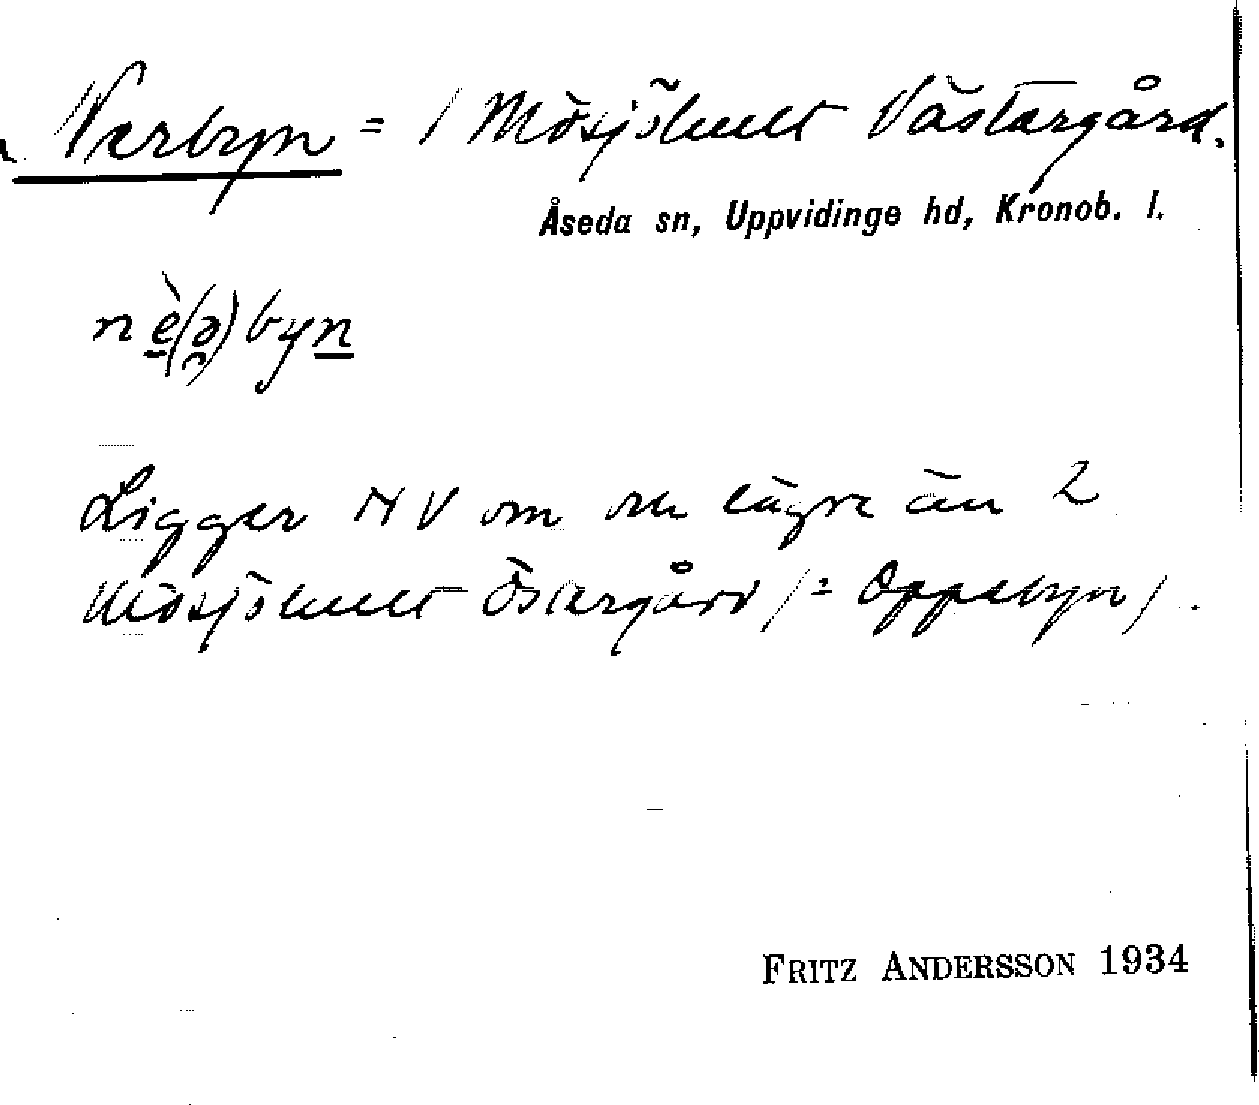 Nerbyn = 1 Mösjöhult Västergård.
Åseda sn, Uppvidinge hd, Kronob. l.
nè(ə)byn
Ligger NV om och lägre än 2
Mösjöhult Östergård /= Oppebyn/.
FRITZ ANDERSSON 1934